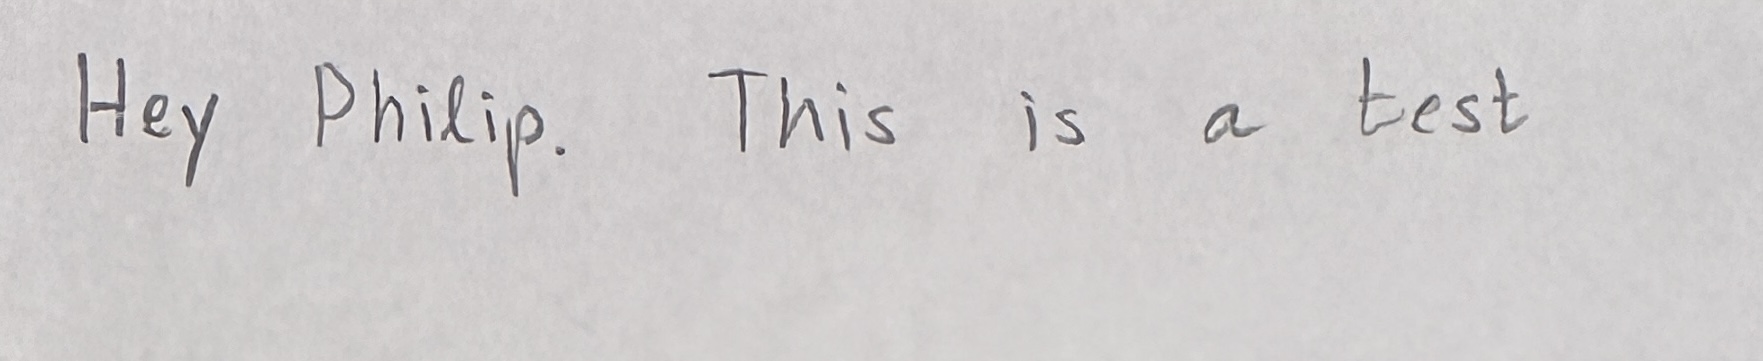 Hey Philip. This is a test